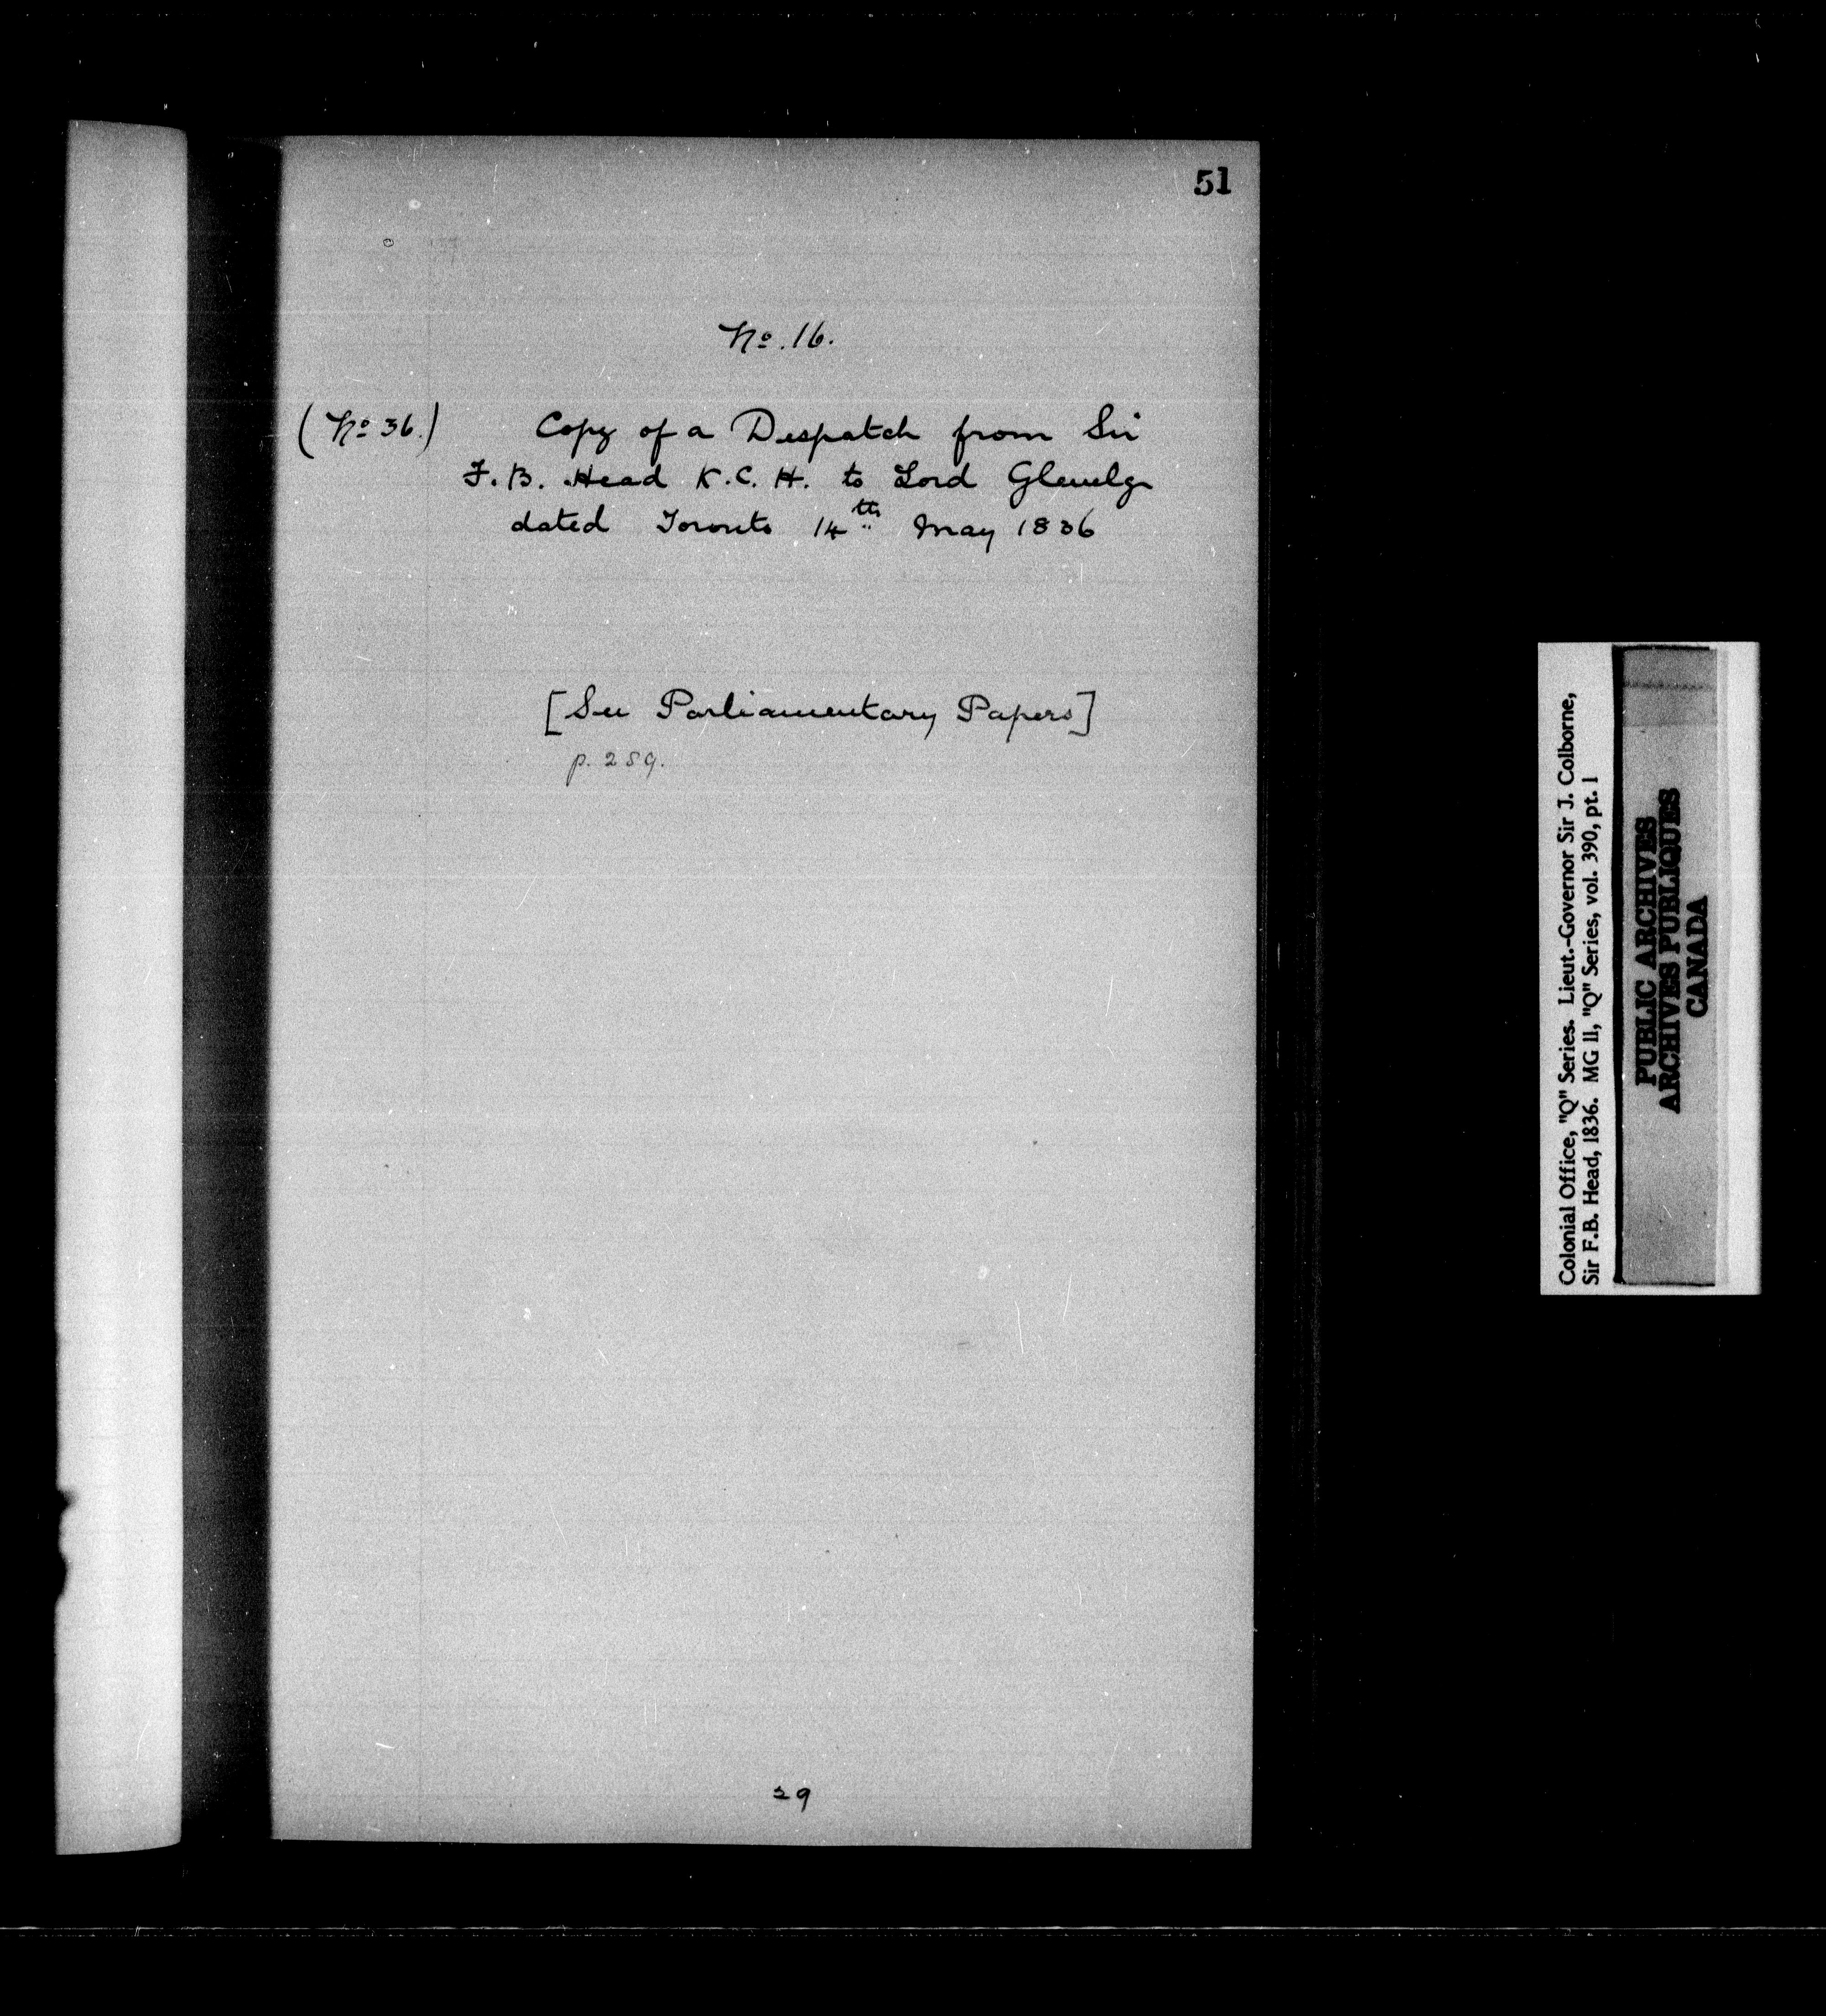 51
No. 16.
(No 36.) Copy of a Despatch from Sir
F. B. Head K.C.H. to Lord Glenelg
dated Toronto 14th May 1836
[See Parliamentary Papers]
p. 259.
29
Colonial Office, "Q" Series. Lieut.-Governor Sir J. Colborne,
Sir F.B. Head, 1836. MG 11, "Q" Series, vol. 390, pt. 1
PUBLIC ARCHIVES
ARCHIVES PUBLIQUES
CANADA